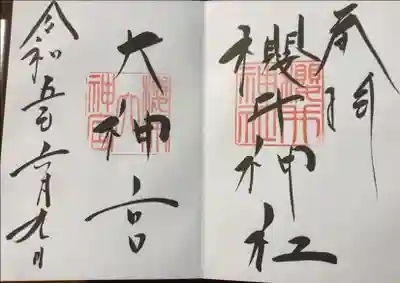 奉拝
櫻井神社
櫻井神社
大神宮
令和五年六月九日